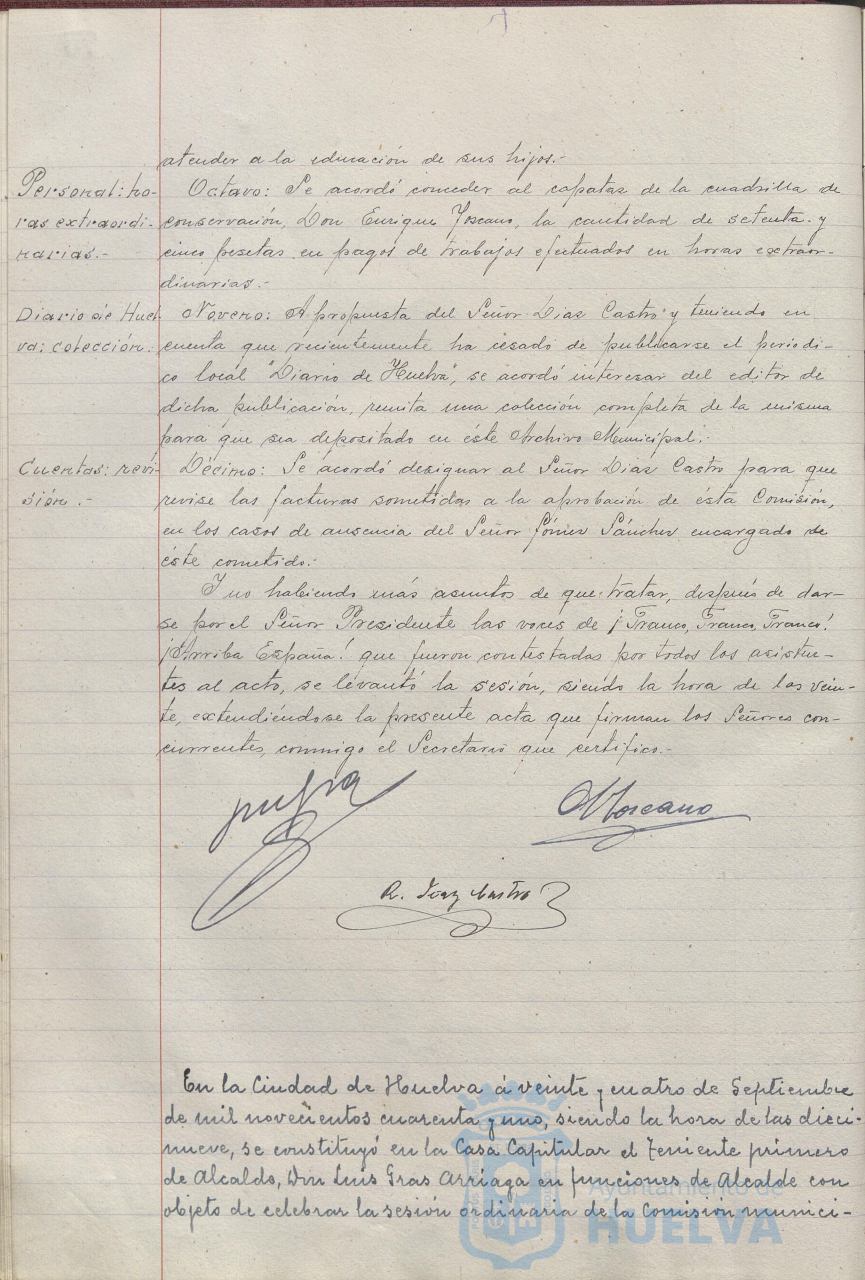 atender a la educación de sus hijos.-
Personal: ho-
ras extraordi-
narias.-
Octavo: Se acordó conceder al capataz de la cuadrilla de
conservación, Don Enrique Toscano, la cantidad de setenta y
cinco pesetas en pagos de trabajos efectuados en horas extraor-
dinarias.-
Diario de Huel-
va: colección.
Noveno: A propuesta del Señor Diaz Castro y teniendo en
cuenta que recientemente ha cesado de publicarse el periódi-
co local "Diario de Huelva", se acordó interesar del editor de
dicha publicación, remita una colección completa de la misma
para que sea depositado en éste Archivo Municipal.-
Cuentas: revi-
sión.-
Décimo: Se acordó designar al Señor Diaz Castro para que
revise las facturas sometidas a la aprobación de ésta Comisión,
en los casos de ausencia del Señor Gómez Sánchez encargado de
éste cometido.-
Y no habiendo más asuntos de que tratar, después de dar-
se por el Señor Presidente las voces de ¡Franco, Franco, Franco!
¡Arriba España! que fueron contestadas por todos los asisten-
tes al acto, se levantó la sesión, siendo la hora de las vein-
te, extendiéndose la presente acta que firman los Señores con-
currentes, conmigo el Secretario que certifico.-
Toscano
R. Diaz Castro
En la Ciudad de Huelva á veinte y cuatro de Septiembre
de mil novecientos cuarenta y uno, siendo la hora de las dieci-
nueve, se constituyó en la Casa Capitular el Teniente primero
de Alcalde, Don Luis Gras Arriaga en funciones de Alcalde con
objeto de celebrar la sesión ordinaria de la Comisión munici-
Ayuntamiento de
HUELVA